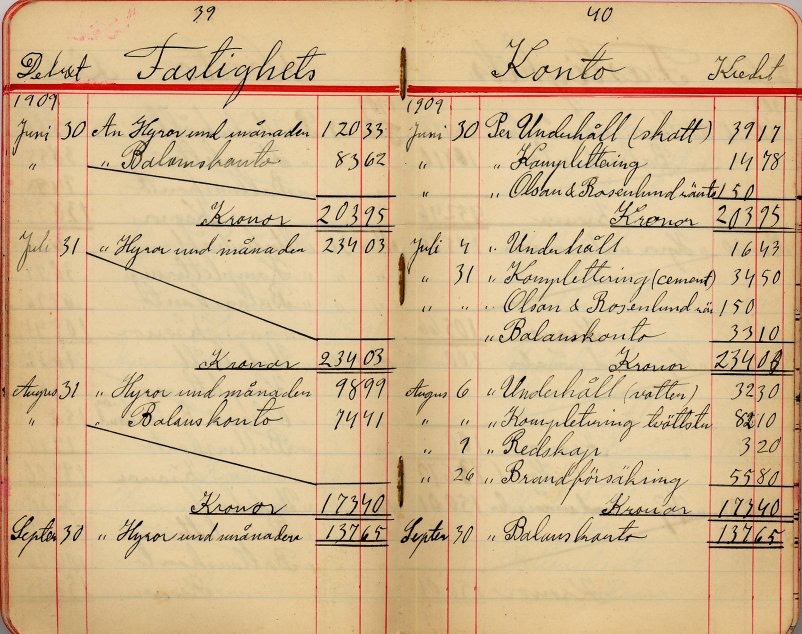 39
Debet Fastighets
1909
Juni 30 An Hyror und månaden 120 33
" " Balanskonto 83 62
Kronor 203 95
Juli 31 " Hyror und månaden 234 03
Kronor 234 03
Augus 31 " Hyror und månaden 98 99
" " Balanskonto 74 41
Kronor 173 40
Septer 30 " Hyror und månaden 137 65
40
Konto Kredit
1909
Juni 30 Per Underhåll (skatt) 39 17
" " Komplettering 14 78
" " Olson & Rosenlund ränta 150
Kronor 203 95
Juli 4 " Underhåll 16 43
" 31 " Komplettering (cement) 34 50
" " " Olson & Rosenlund rän 150
" Balanskonto 33 10
Kronor 234 03
Augus 6 " Underhåll (vatten) 32 30
" " " Komplettering tvättstu 82 10
" 9 " Redskap 3 20
" 26 " Brandförsäkring 55 80
Kronor 173 40
Septer 30 " Balanskonto 137 65